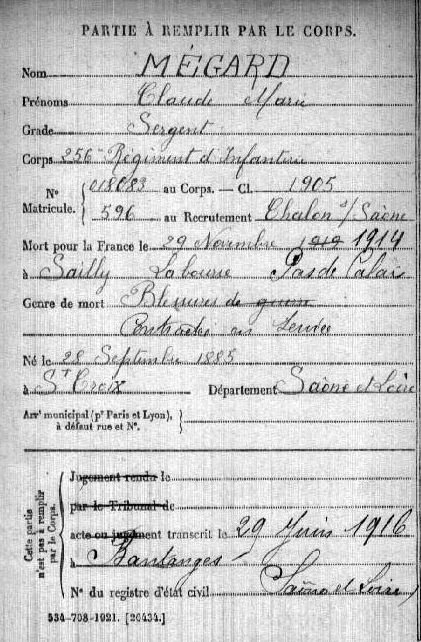 PARTIE À REMPLIR PAR LE CORPS.
Nom MÉGARD
Prénoms Claude Marie
Grade Sergent
Corps 256e Régiment d'Infanterie
N° Matricule. 018083 au Corps. — Cl. 1905
596 au Recrutement Chalon s/ Saône
Mort pour la France le 29 Novembre 1919 1914
à Sailly Labourse Pas de Calais
Genre de mort Blessures de guerre
Contractées en Service
Né le 28 Septembre 1885
à St Croix Département Saône et Loire
Arrt municipal (pr Paris et Lyon),
à défaut rue et N°.
Cette partie
n'est pas à remplir
par le Corps.
Jugement rendu le
par le Tribunal de
acte ou jugement transcrit le 29 Juin 1916
à Bantanges
N° du registre d'état civil Saône et Loire
534-708-1921. [26434.]